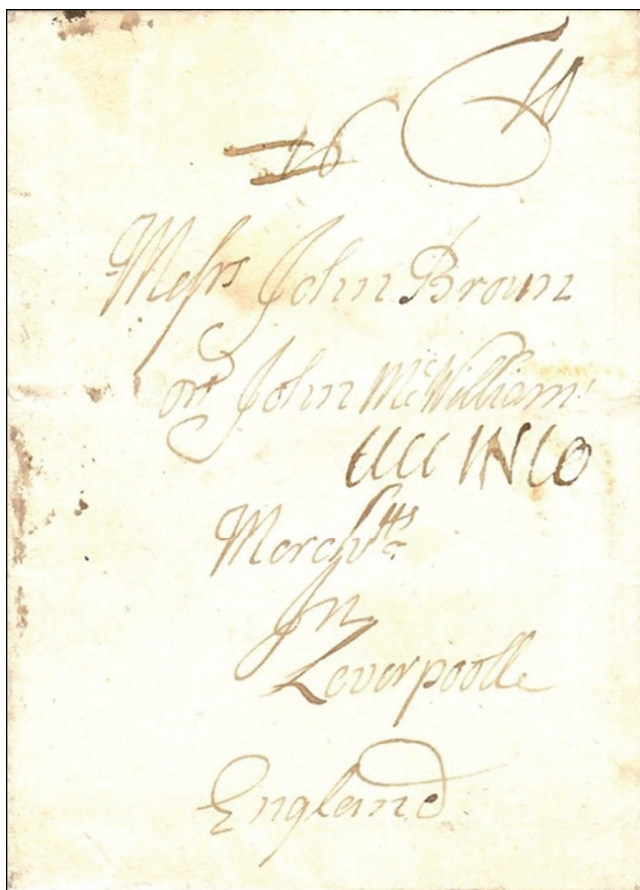 16 10
Messrs John Broun
or John McWilliam
Merchtts
In
Leverpoolle
England